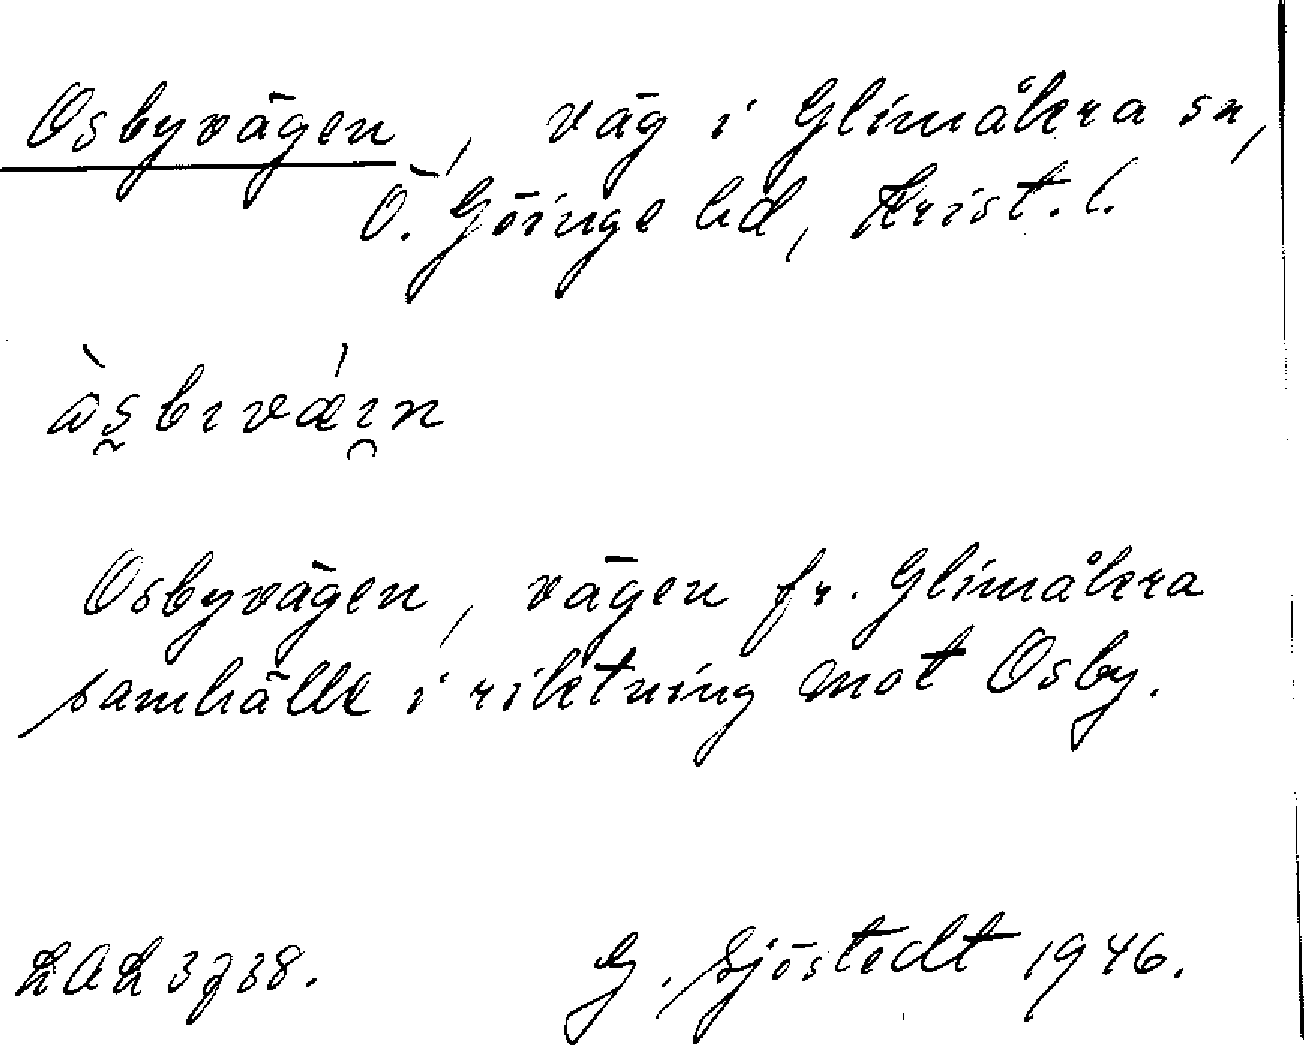 Osbyvägen, väg i Glimåkra sn,
Ö. Göinge hd, Krist. l.
Osbyvägen, vägen fr. Glimåkra
samhälle i riktning mot Osby.
LAL 3738. G. Sjöstedt 1946.